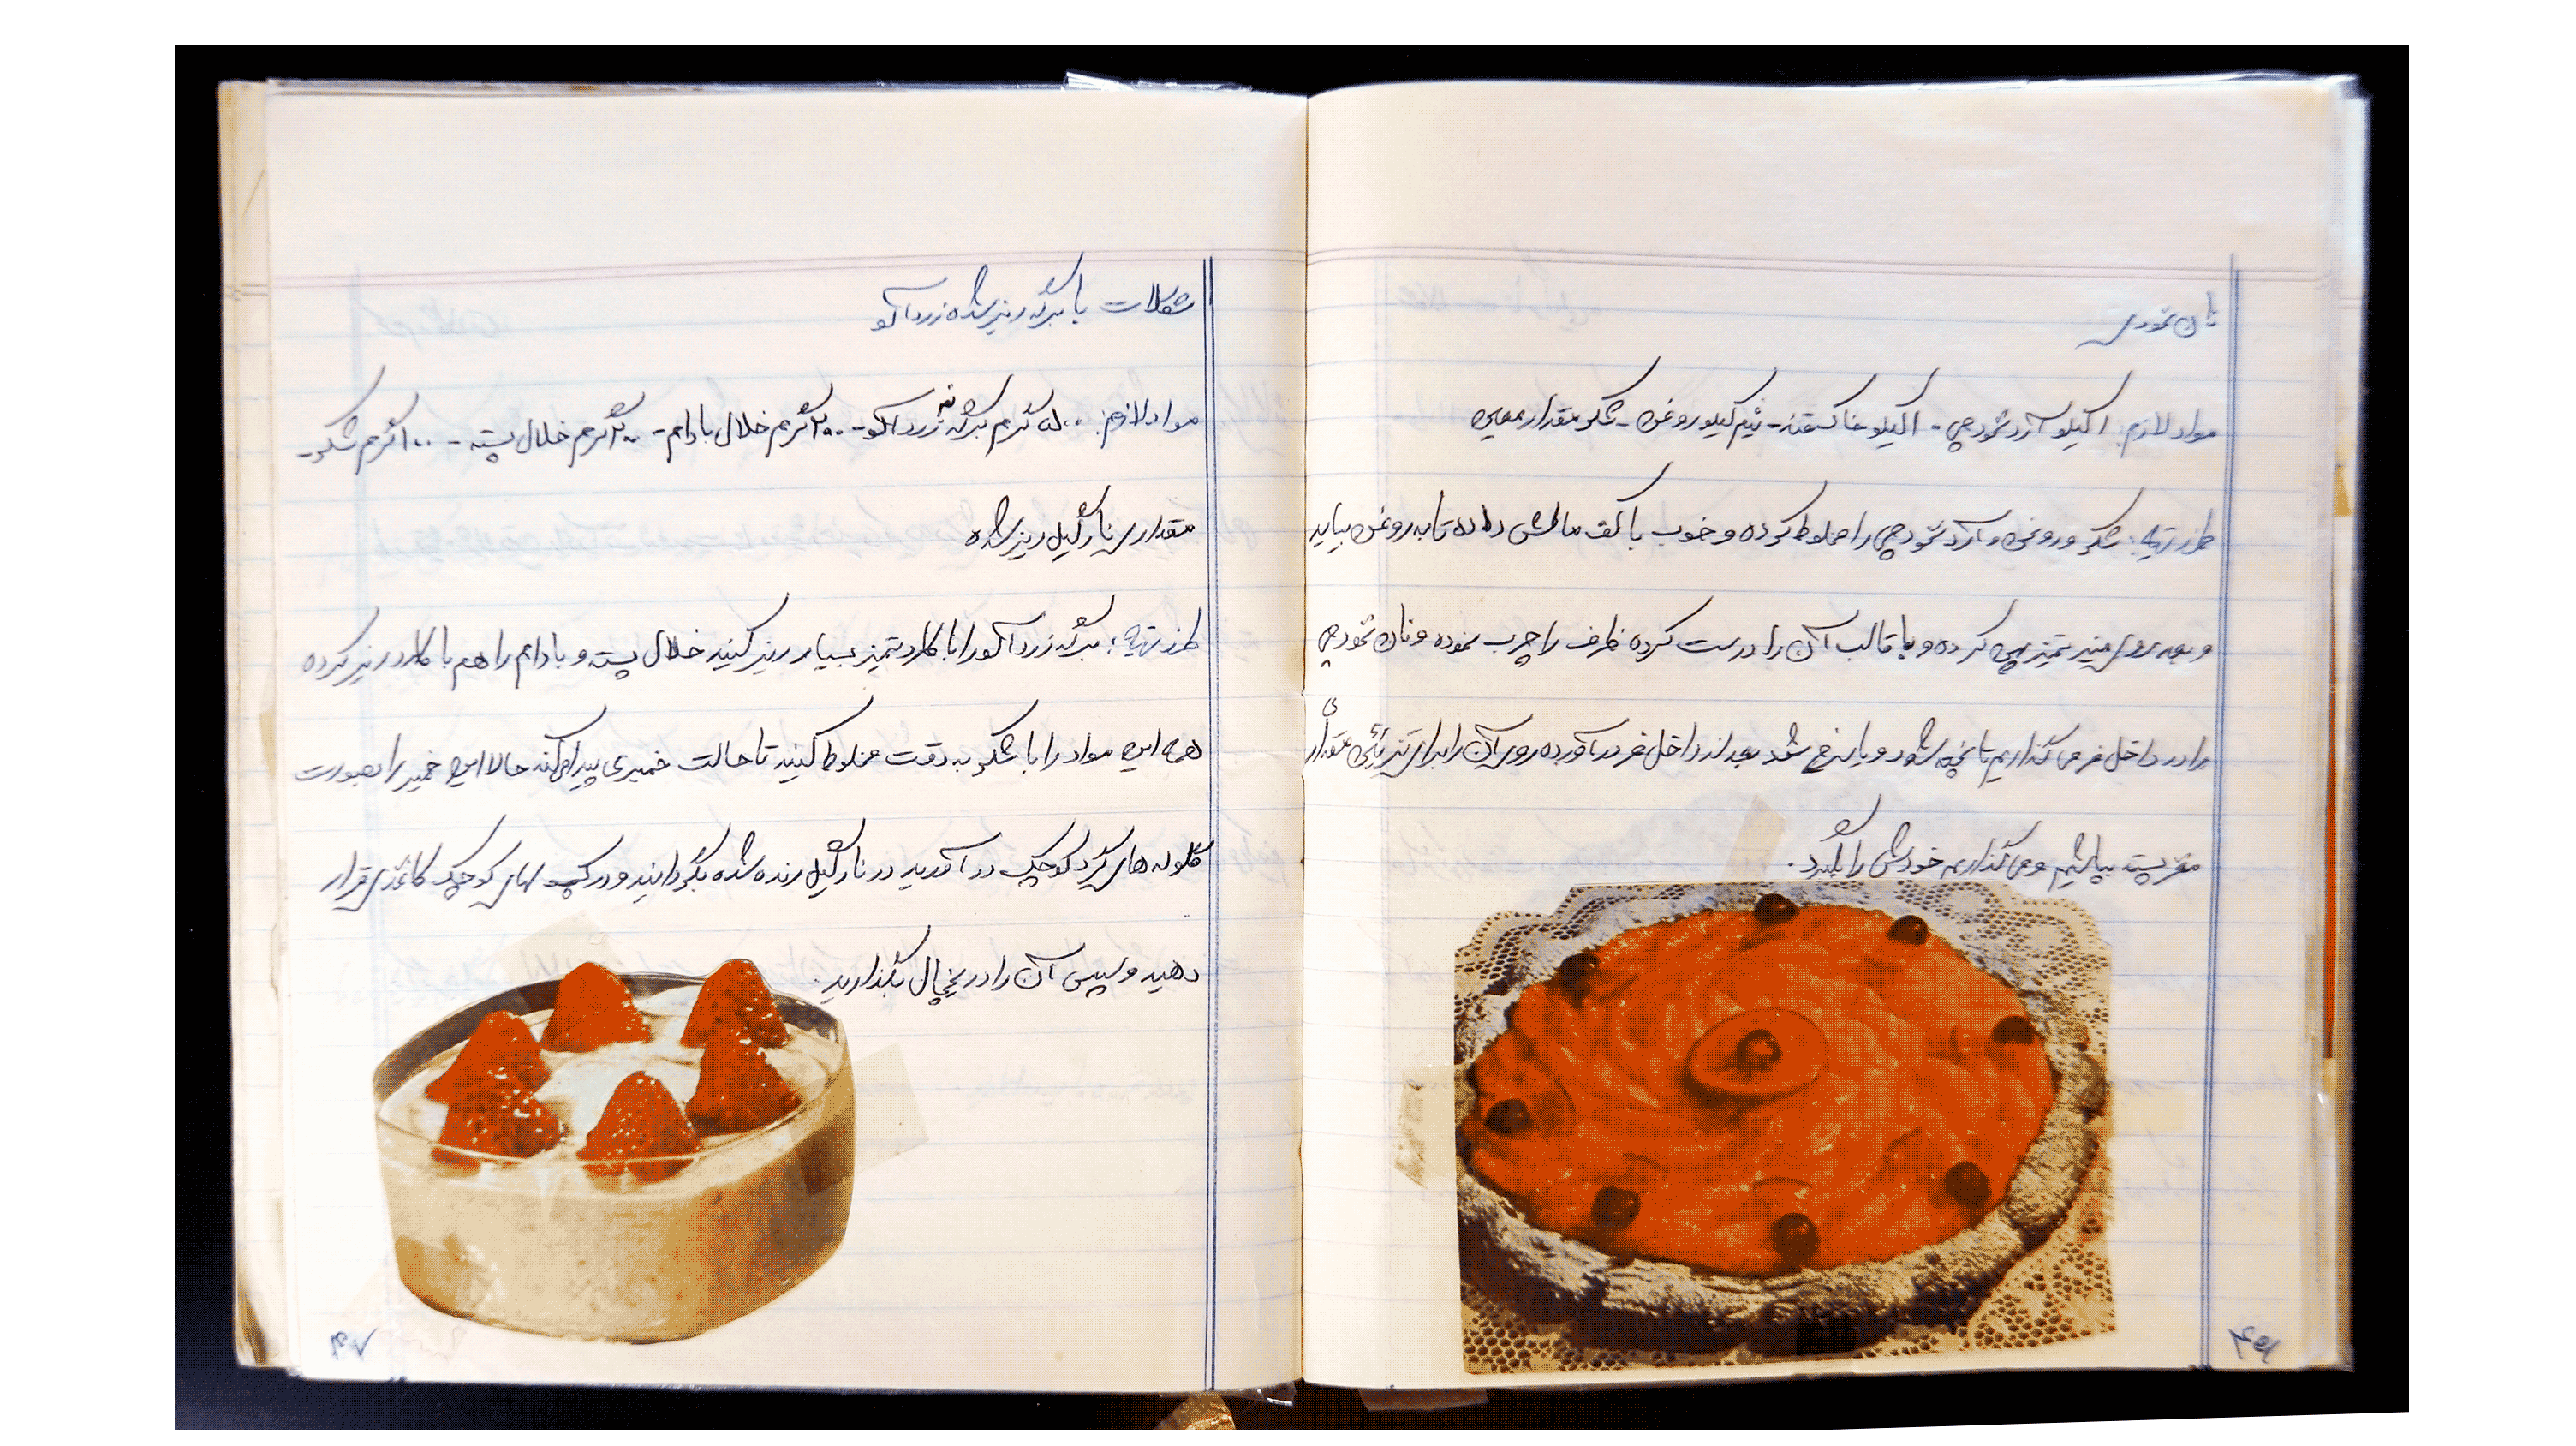 نان نخودی
مواد لازم: ۱ کیلو آرد نخودچی - ۱ کیلو خاکه قند - نیم کیلو روغن - شکر مقدار معین
طرز تهیه: شکر و روغن و آرد نخودچی را مخلوط کرده و خوب با کف مالش داده تا به روغن بیاید
و به روی میز تمیز پهن کرده و با قالب آن را درست کرده ظرف را چرب نموده و نان نخودچی
را در داخل فر می گذاریم تا پخته شود و بعد از داخل فر در آورده روی آن را برای تزئین مقداری
مغز پسته بپاشیم و می گذاریم خودش را بگیرد.
شکلات با برگه ریز شده زردآلو
مواد لازم: ۵۰۰ گرم برگه زردآلو - ۲۰۰ گرم خلال بادام - ۲۰۰ گرم خلال پسته - ۱۰۰ گرم شکر -
مقداری نارگیل ریز شده
طرز تهیه: برگه زردآلو را با کارد تمیز بسیار ریز کنید خلال پسته و بادام را هم با کارد ریز کرده
همه این مواد را با شکر به دقت مخلوط کنید تا حالت خمیری پیدا کند حالا این خمیر را بصورت
گلوله های گرد کوچک در آورید در نارگیل رنده شده بگردانید و در کپ های کوچک کاغذی قرار
دهید و سپس آن را در یخچال بگذارید.